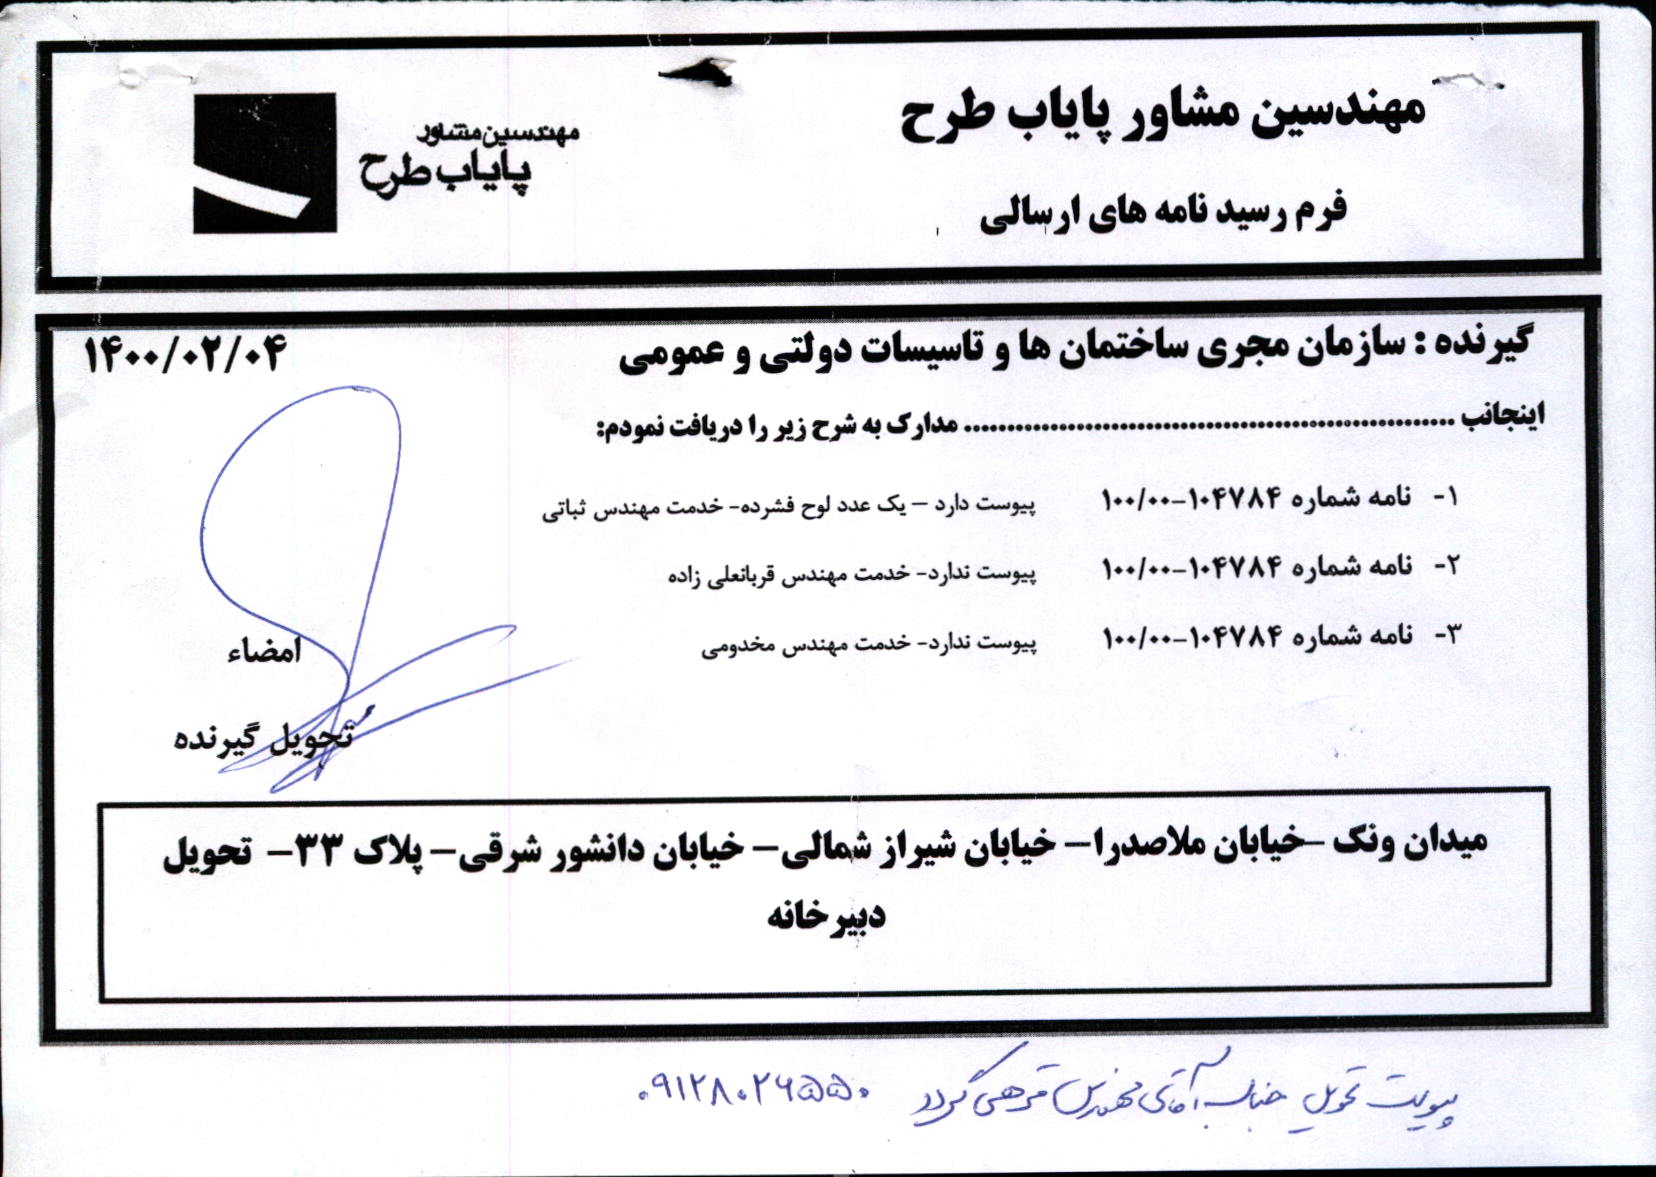 مهندسین مشاور پایاب طرح
مهندسین مشاور
پایاب طرح
فرم رسید نامه های ارسالی
گیرنده : سازمان مجری ساختمان ها و تاسیسات دولتی و عمومی ۱۴۰۰/۰۲/۰۴
اینجانب ............................................................ مدارک به شرح زیر را دریافت نمودم:
۱- نامه شماره ۱۰۴۷۸۴-۱۰۰/۰۰ پیوست دارد – یک عدد لوح فشرده- خدمت مهندس ثباتی
۲- نامه شماره ۱۰۴۷۸۴-۱۰۰/۰۰ پیوست ندارد- خدمت مهندس قربانعلی زاده
۳- نامه شماره ۱۰۴۷۸۴-۱۰۰/۰۰ پیوست ندارد- خدمت مهندس مخدومی
امضاء
تحویل گیرنده
میدان ونک –خیابان ملاصدرا– خیابان شیراز شمالی– خیابان دانشور شرقی– پلاک ۳۳– تحویل
دبیرخانه
پیوست تحویل جناب آقای مهندس گردد ۰۹۱۲۸۰۲۶۵۵۰